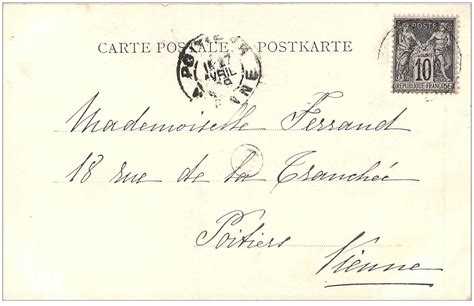 CARTE POSTALE. POSTKARTE
POITIERS
27
AVRIL
VIENNE
10
REPUBLIQUE FRANÇAISE
Mademoiselle Ferrand
18 rue de la Tranchée
Poitiers
Vienne